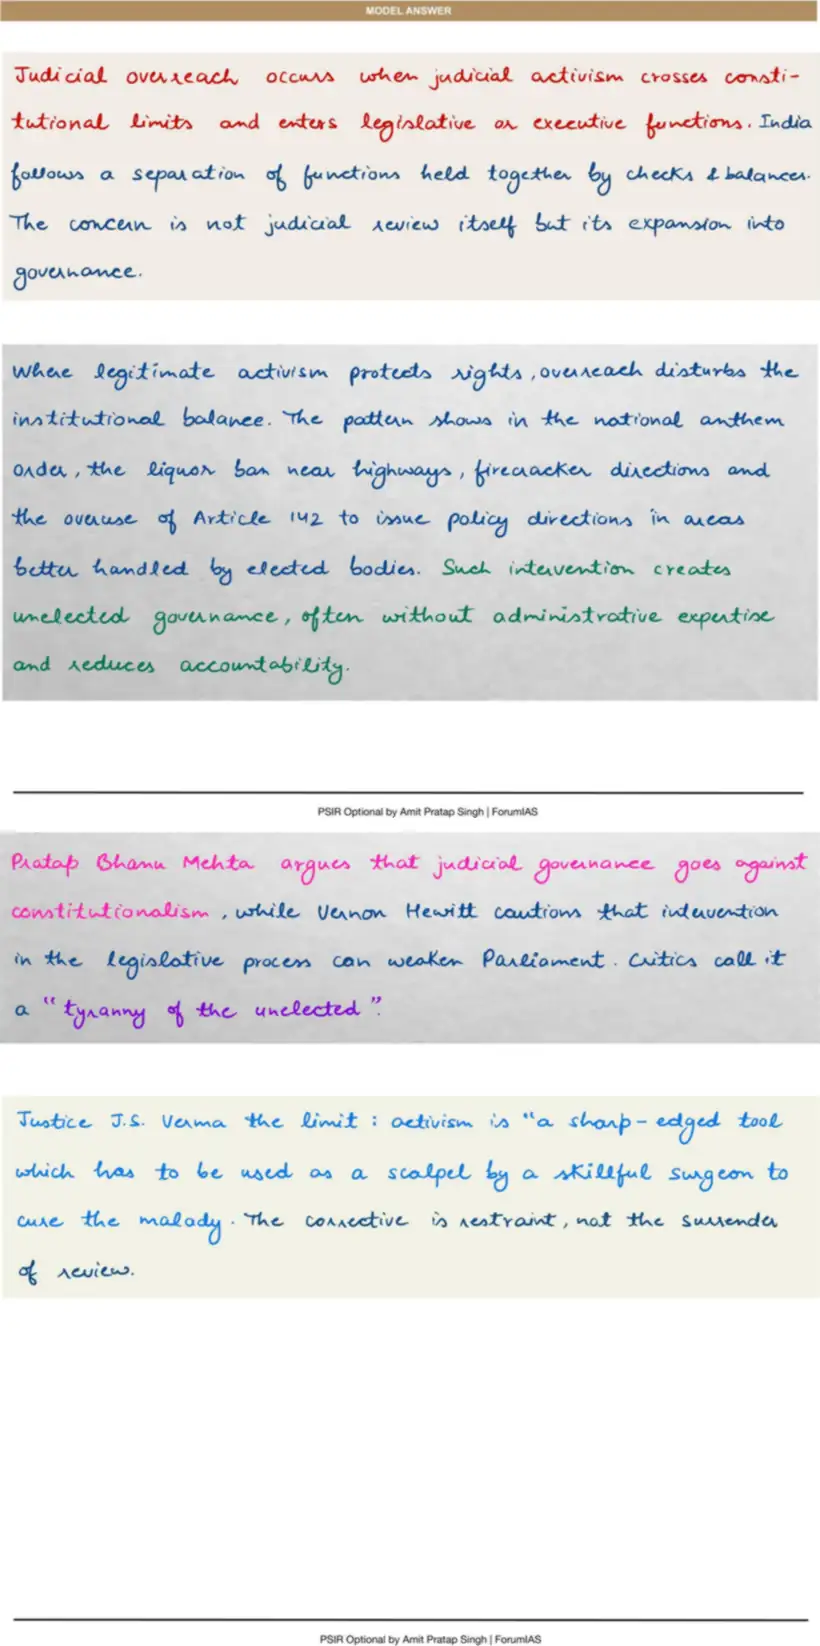 MODEL ANSWER
Judicial overreach occurs when judicial activism crosses consti-
tutional limits and enters legislative or executive functions. India
follows a separation of functions held together by checks & balances.
The concern is not judicial review itself but its expansion into
governance.
Where legitimate activism protects rights, overreach disturbs the
institutional balance. The pattern shows in the national anthem
order, the liquor ban near highways, firecracker directions and
the overuse of Article 142 to issue policy directions in areas
better handled by elected bodies. Such intervention creates
unelected governance, often without administrative expertise
and reduces accountability.
PSIR Optional by Amit Pratap Singh | ForumIAS
Pratap Bhanu Mehta argues that judicial governance goes against
constitutionalism, while Vernon Hewitt cautions that intervention
in the legislative process can weaken Parliament. Critics call it
a "tyranny of the unelected".
Justice J.S. Verma the limit: activism is "a sharp-edged tool
which has to be used as a scalpel by a skillful surgeon to
cure the malady. The corrective is restraint, not the surrender
of review.
PSIR Optional by Amit Pratap Singh | ForumIAS